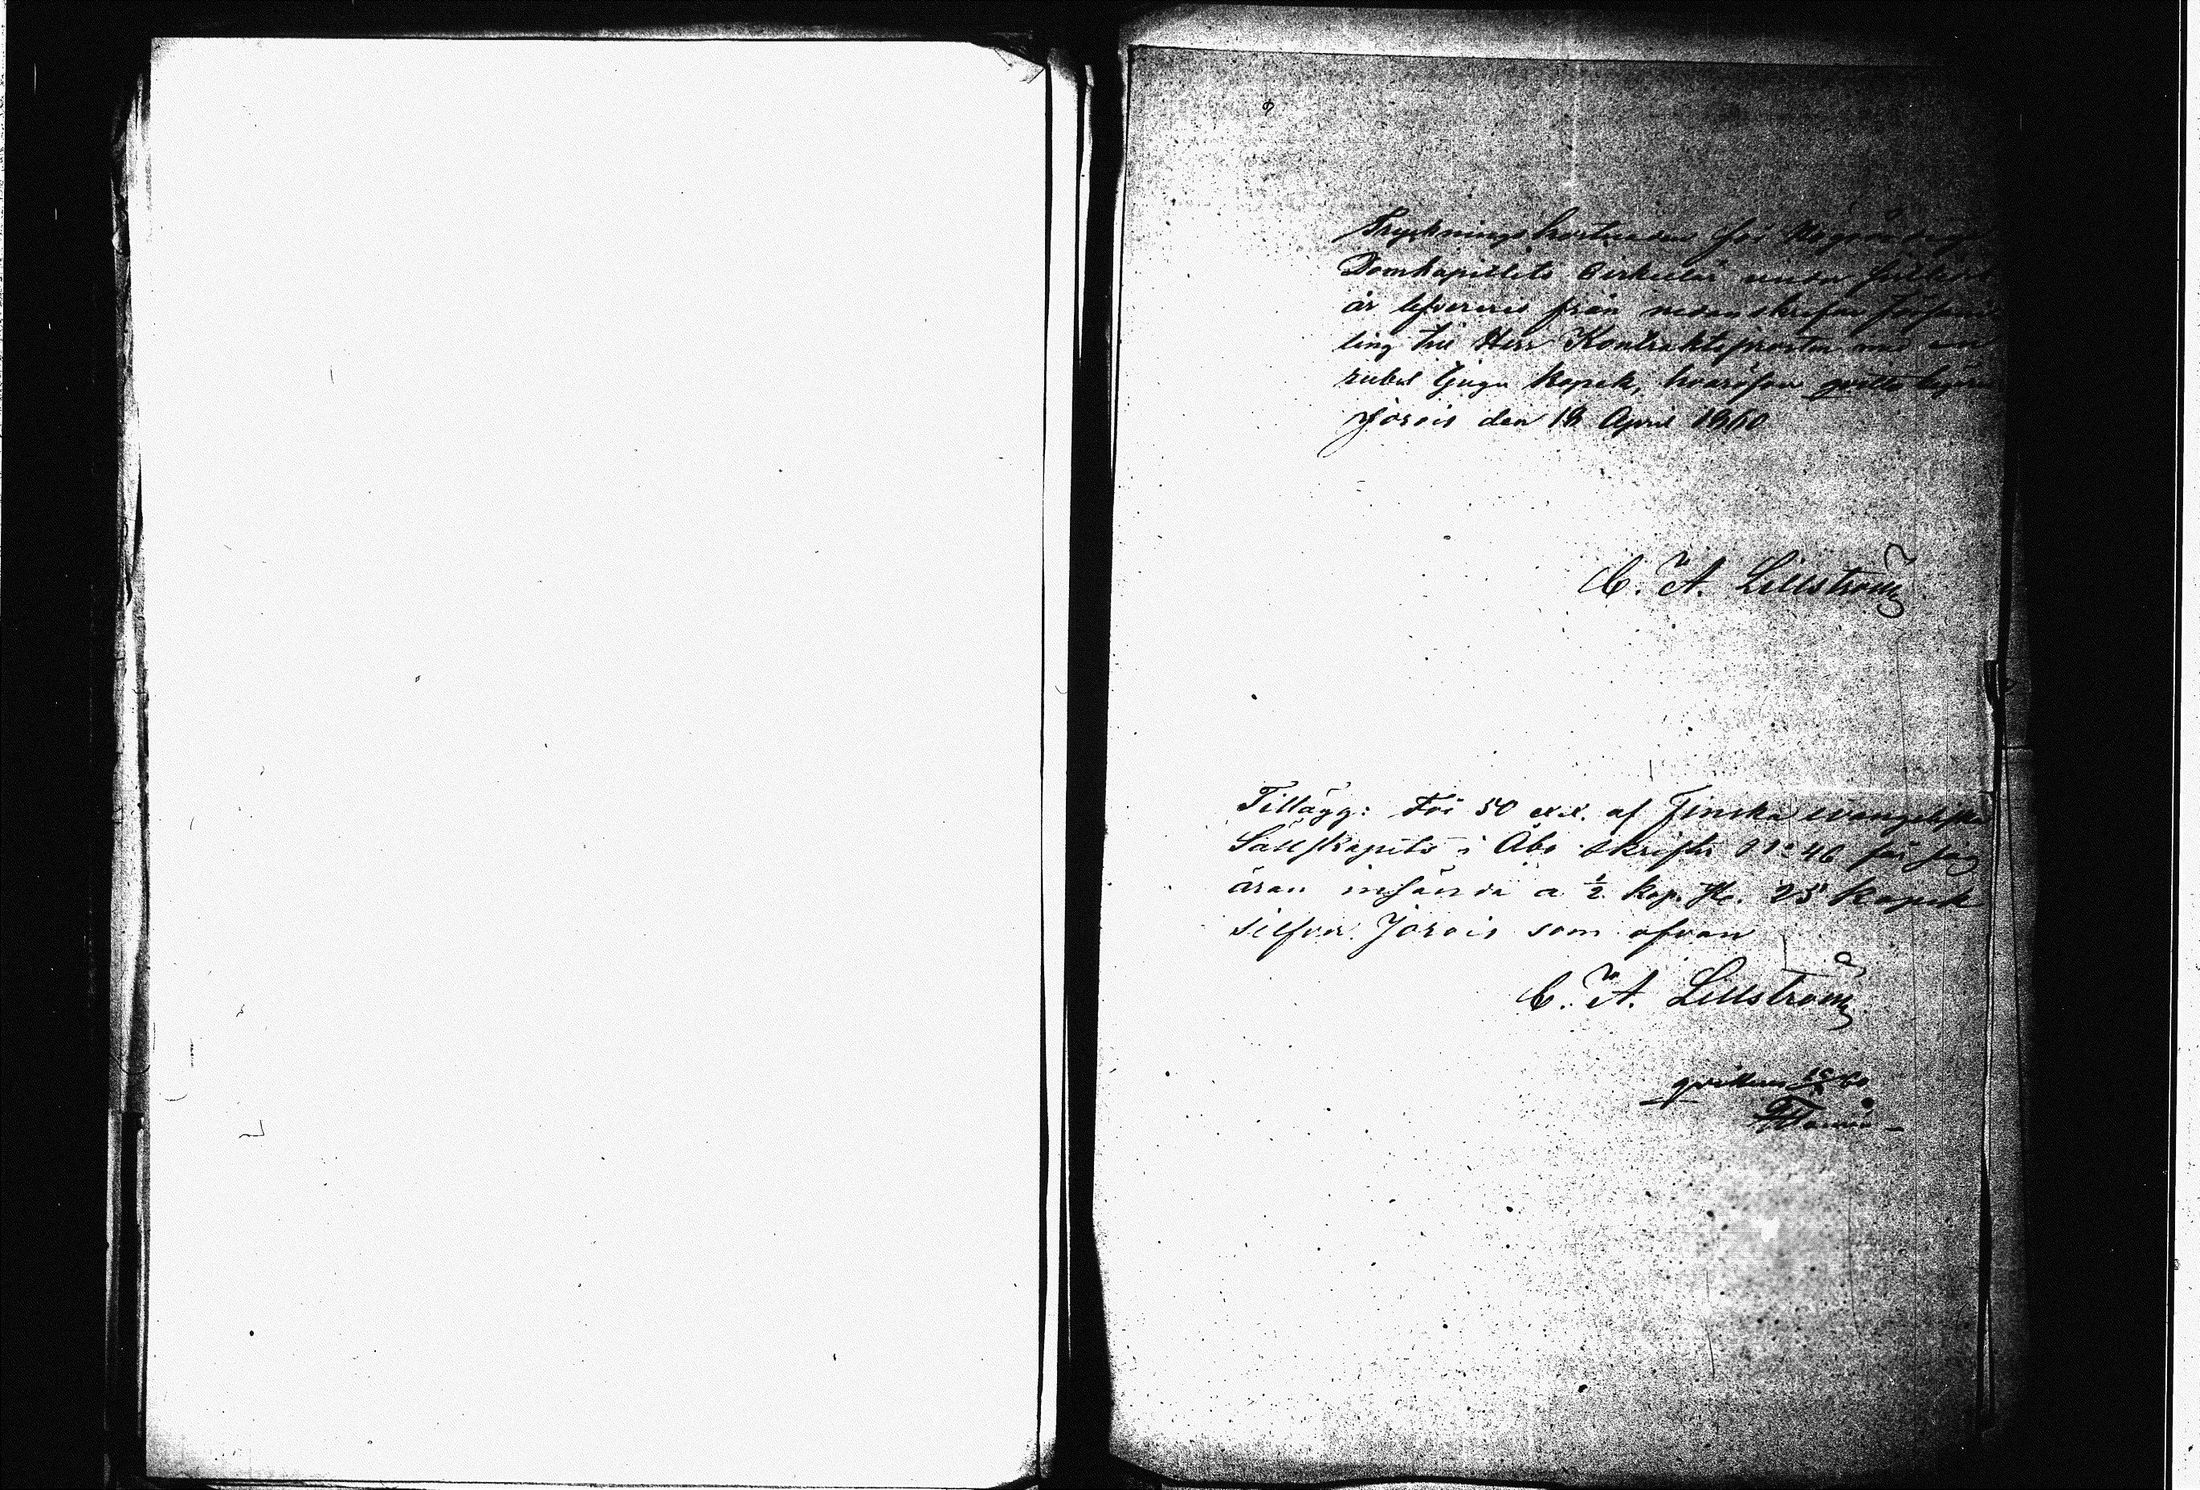 Tryckningskostnaden för Högvördiga
Domkapitlets Cirkulär under
är lefvererad från nedanskrefne Församm
ling till Herr Kontraktsprosten med en
rubel tjugu kopek, hvaröfver qvitto begäres
Jorois den 18 April 1860
C. A. Lillström
Tillägg: För 50 ex. af Finska evangeliska
Sällskapets i Åbo skrifter N:o 46 får jag
äran insända a ½ kop. st. 25 kopek
silfver. Jorois som ofvan
C. A. Lillström
qvitteras